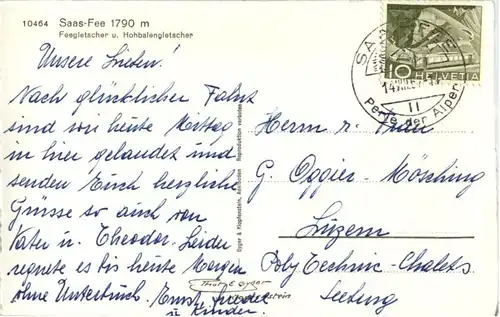 10464 Saas-Fee 1790 m
Feegletscher u. Hohbalengletscher
Unsere Lieben!
Nach glücklicher Fahrt
sind wir heute Mittag
in hier gelandet und
senden Euch herzliche
Grüsse so auch von
Vater u. Theodor. Leider
regnete es bis heute Morgen
ohne Unterbruch. Ernst,
u. Kinder.
Gyger & Klopfenstein, Adelboden Reproduktion verboten
10 HELVETIA
SAAS-FEE
Perle der Alpen
Herrn u.
G. Oggier-Mösching
Luzern
Poly Technic-Chalets
Seeburg